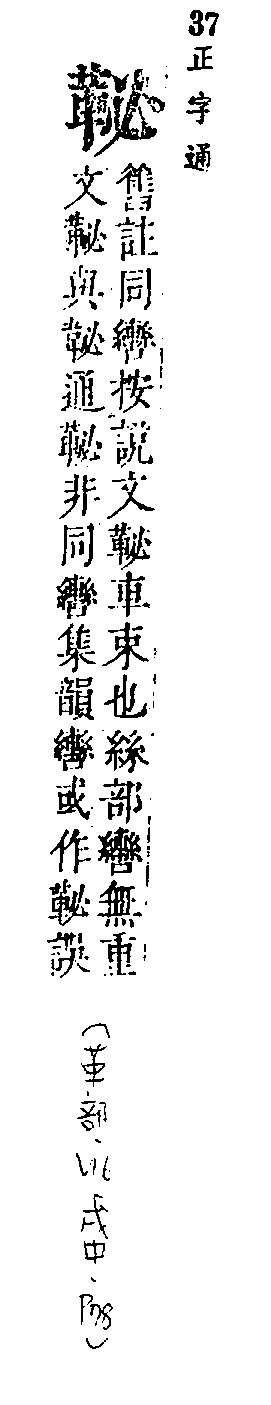 37 正字通
䩛
舊註同轡按説文䩛車束也絲部轡無重
文䩛與䪐通䩛非同轡集韻轡或作䩛誤
(革部、戌中、P78)